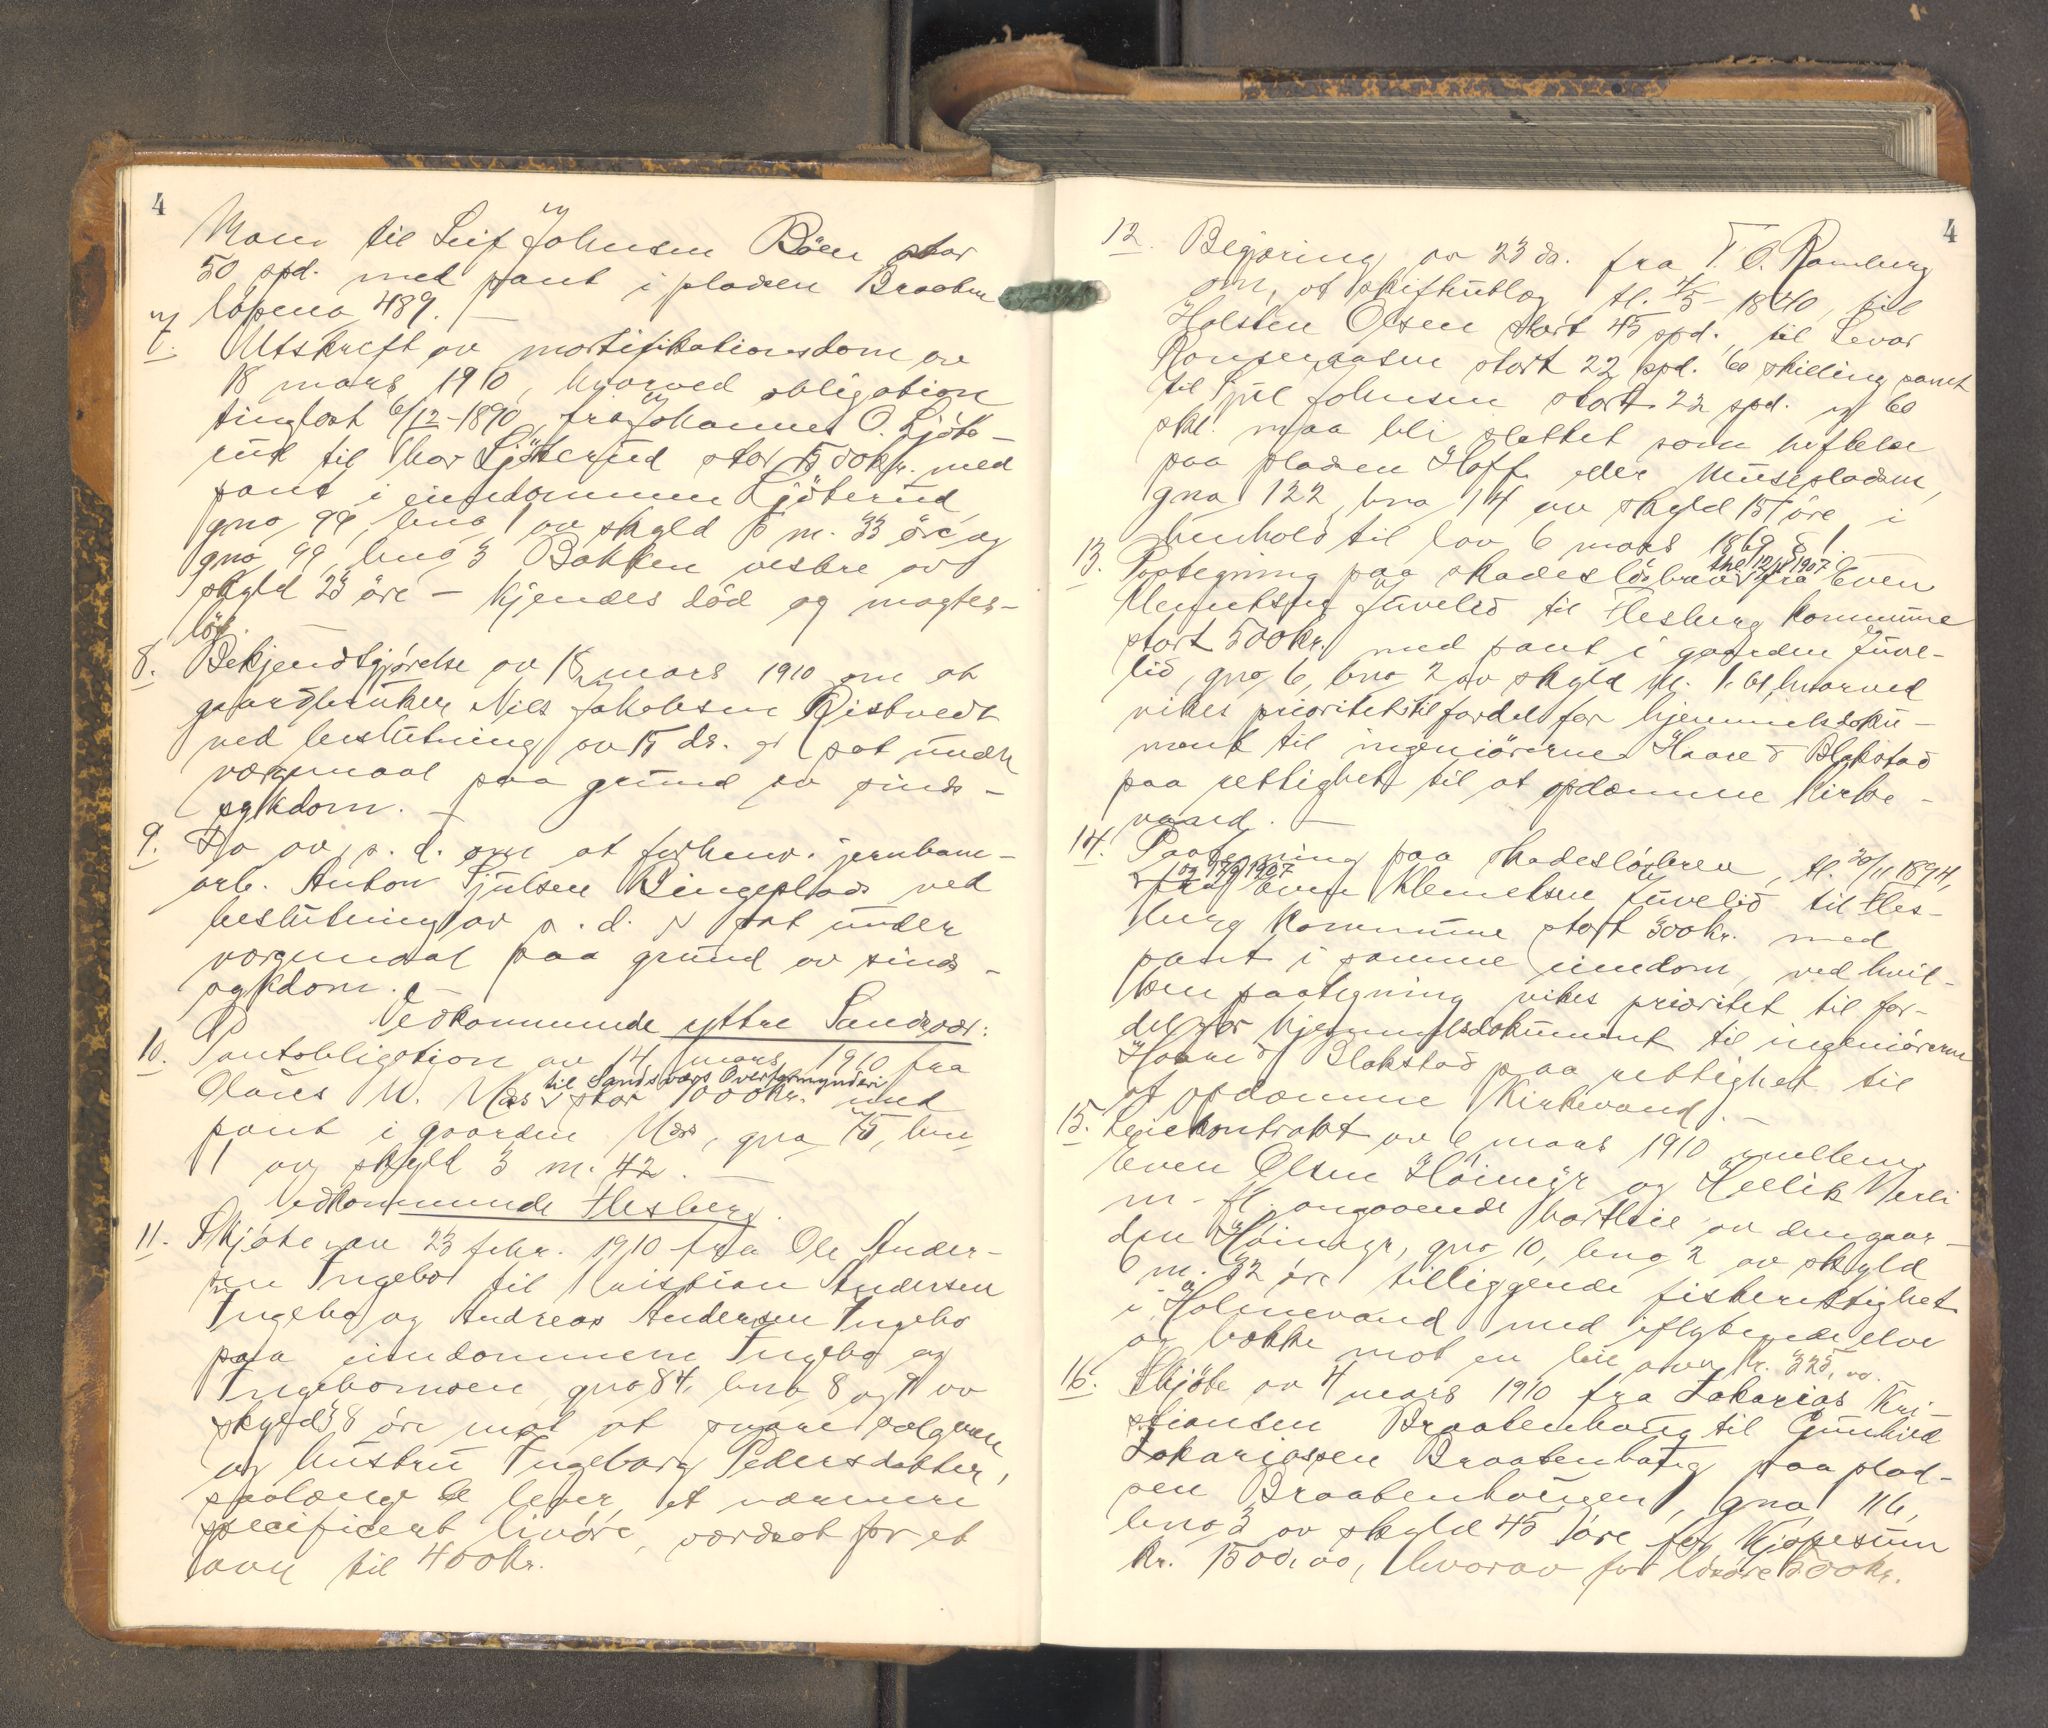 4
Moen til Leif Johnsen Böen stor
50 spd. med pant i pladsen Braaten
löpeno 489. —
7. Utskrift av mortifikationsdom av
18 mars 1910, hvorved obligation
tinglæst 6/12-1890, fra Johannes O. Ljöte-
rud til Ljöterud stor 1500 kr. med
pant i eiendommen Ljöterud,
gno 99, bno 1 av skyld m. 33 öre og
gno 99, bno 3 Bakken vestre av
skyld 23 öre — kjendes död og magtes-
lös.
8. Bekjendtgjörelse av 18 mars 1910 om at
gaardbruker Nils Jakobsen Qistvedt
ved beslutning av 15 ds. er sat under
værgemaal paa grund av sinds-
sykdom. —
9. Do av s. d. om at forhenv. jernbane-
arb. Anton Tjulsen Bingeplads ved
beslutning av s. d. er sat under
værgemaal paa grund av sinds-
sykdom. —
Vedkommende ytre Sandsvær:
10. Pantobligation av 14 mars 1910 fra
til Sandsværs Overformynderi
Olaus M. Mæs stor 1000 kr. med
pant i gaarden Mæs, gno 15, bno
1 av skyld 3 m. 42. —
Vedkommende Flesberg.
11. Skjöte av 23 febr. 1910 fra Ole Ander-
sen Ingebo til Kristian Andersen
Ingebo og Andreas Andersen Ingebo
paa eiendommene Ingebo og
Ingebomoen, gno 84, bno 8 og 9 av
skyld 38 öre mot at svare sælgeren
og hustru Ingeborg Pedersdatter,
saalænge de lever, et nærmere
specificert livöre, værdsat for et
aar til 400 kr.
4
12. Begjæring av 23 ds. fra T. O. Ramberg
om, at skifteutlæg, tl. 4/5-1840, til
Halsten Olsen stort 45 spd., til Sevar
Kongsgaasen stort 22 spd. 60 skilling samt
til Tjul Johnsen stort 22 spd. og 60
skl. maa bli slettet som heftelse
paa pladsen Hoff eller Musepladsen,
gno 122, bno 14 av skyld 15 öre, i
henhold til lov 6 mars 1869 § 1.
13. Paategning paa skadeslösbrev fra Even
Klemetsen Juvelid til Flesberg kommune
stort 500 kr. med pant i gaarden Juve-
lid, gno 6, bno 2 av skyld M. 1.61, hvorved
vikes prioritet til fordel for hjemmelsdoku-
ment til ingeniörerne Haare & Blakstad
paa rettighet til at opdæmme Kirke-
vand. —
14. Paategning paa skadeslösbrev, tl. 20/11 1894,
og 17/9 1907
fra Even Klemetsen Juvelid til Fles-
berg kommune stort 300 kr. med
pant i samme eiendom, ved hvil-
ken paategning vikes prioritet til for-
del for hjemmelsdokument til ingeniörerne
Haare & Blakstad paa rettighet til
at opdæmme Kirkevand. —
15. Leiekontrakt av 6 mars 1910 mellem
Even Olsen Höimyr og Hellik Verli
m. fl. angaaende bortleie av den gaar-
den Höimyr, gno 10, bno 2 av skyld
6 m. 32 öre tilliggende fiskerettighet
i Holmevand med iflytende elve
og bække mot en leie av kr. 325,00.
16. Skjöte av 4 mars 1910 fra Zakarias Kri-
stiansen Braatenhaug til Gunhild
Zakariassen Braatenhaug paa plad-
sen Braatenhaugen, gno 116,
bno 3 av skyld 45 öre for kjöpesum
kr. 1500,00, hvorav for lösöre 500 kr.